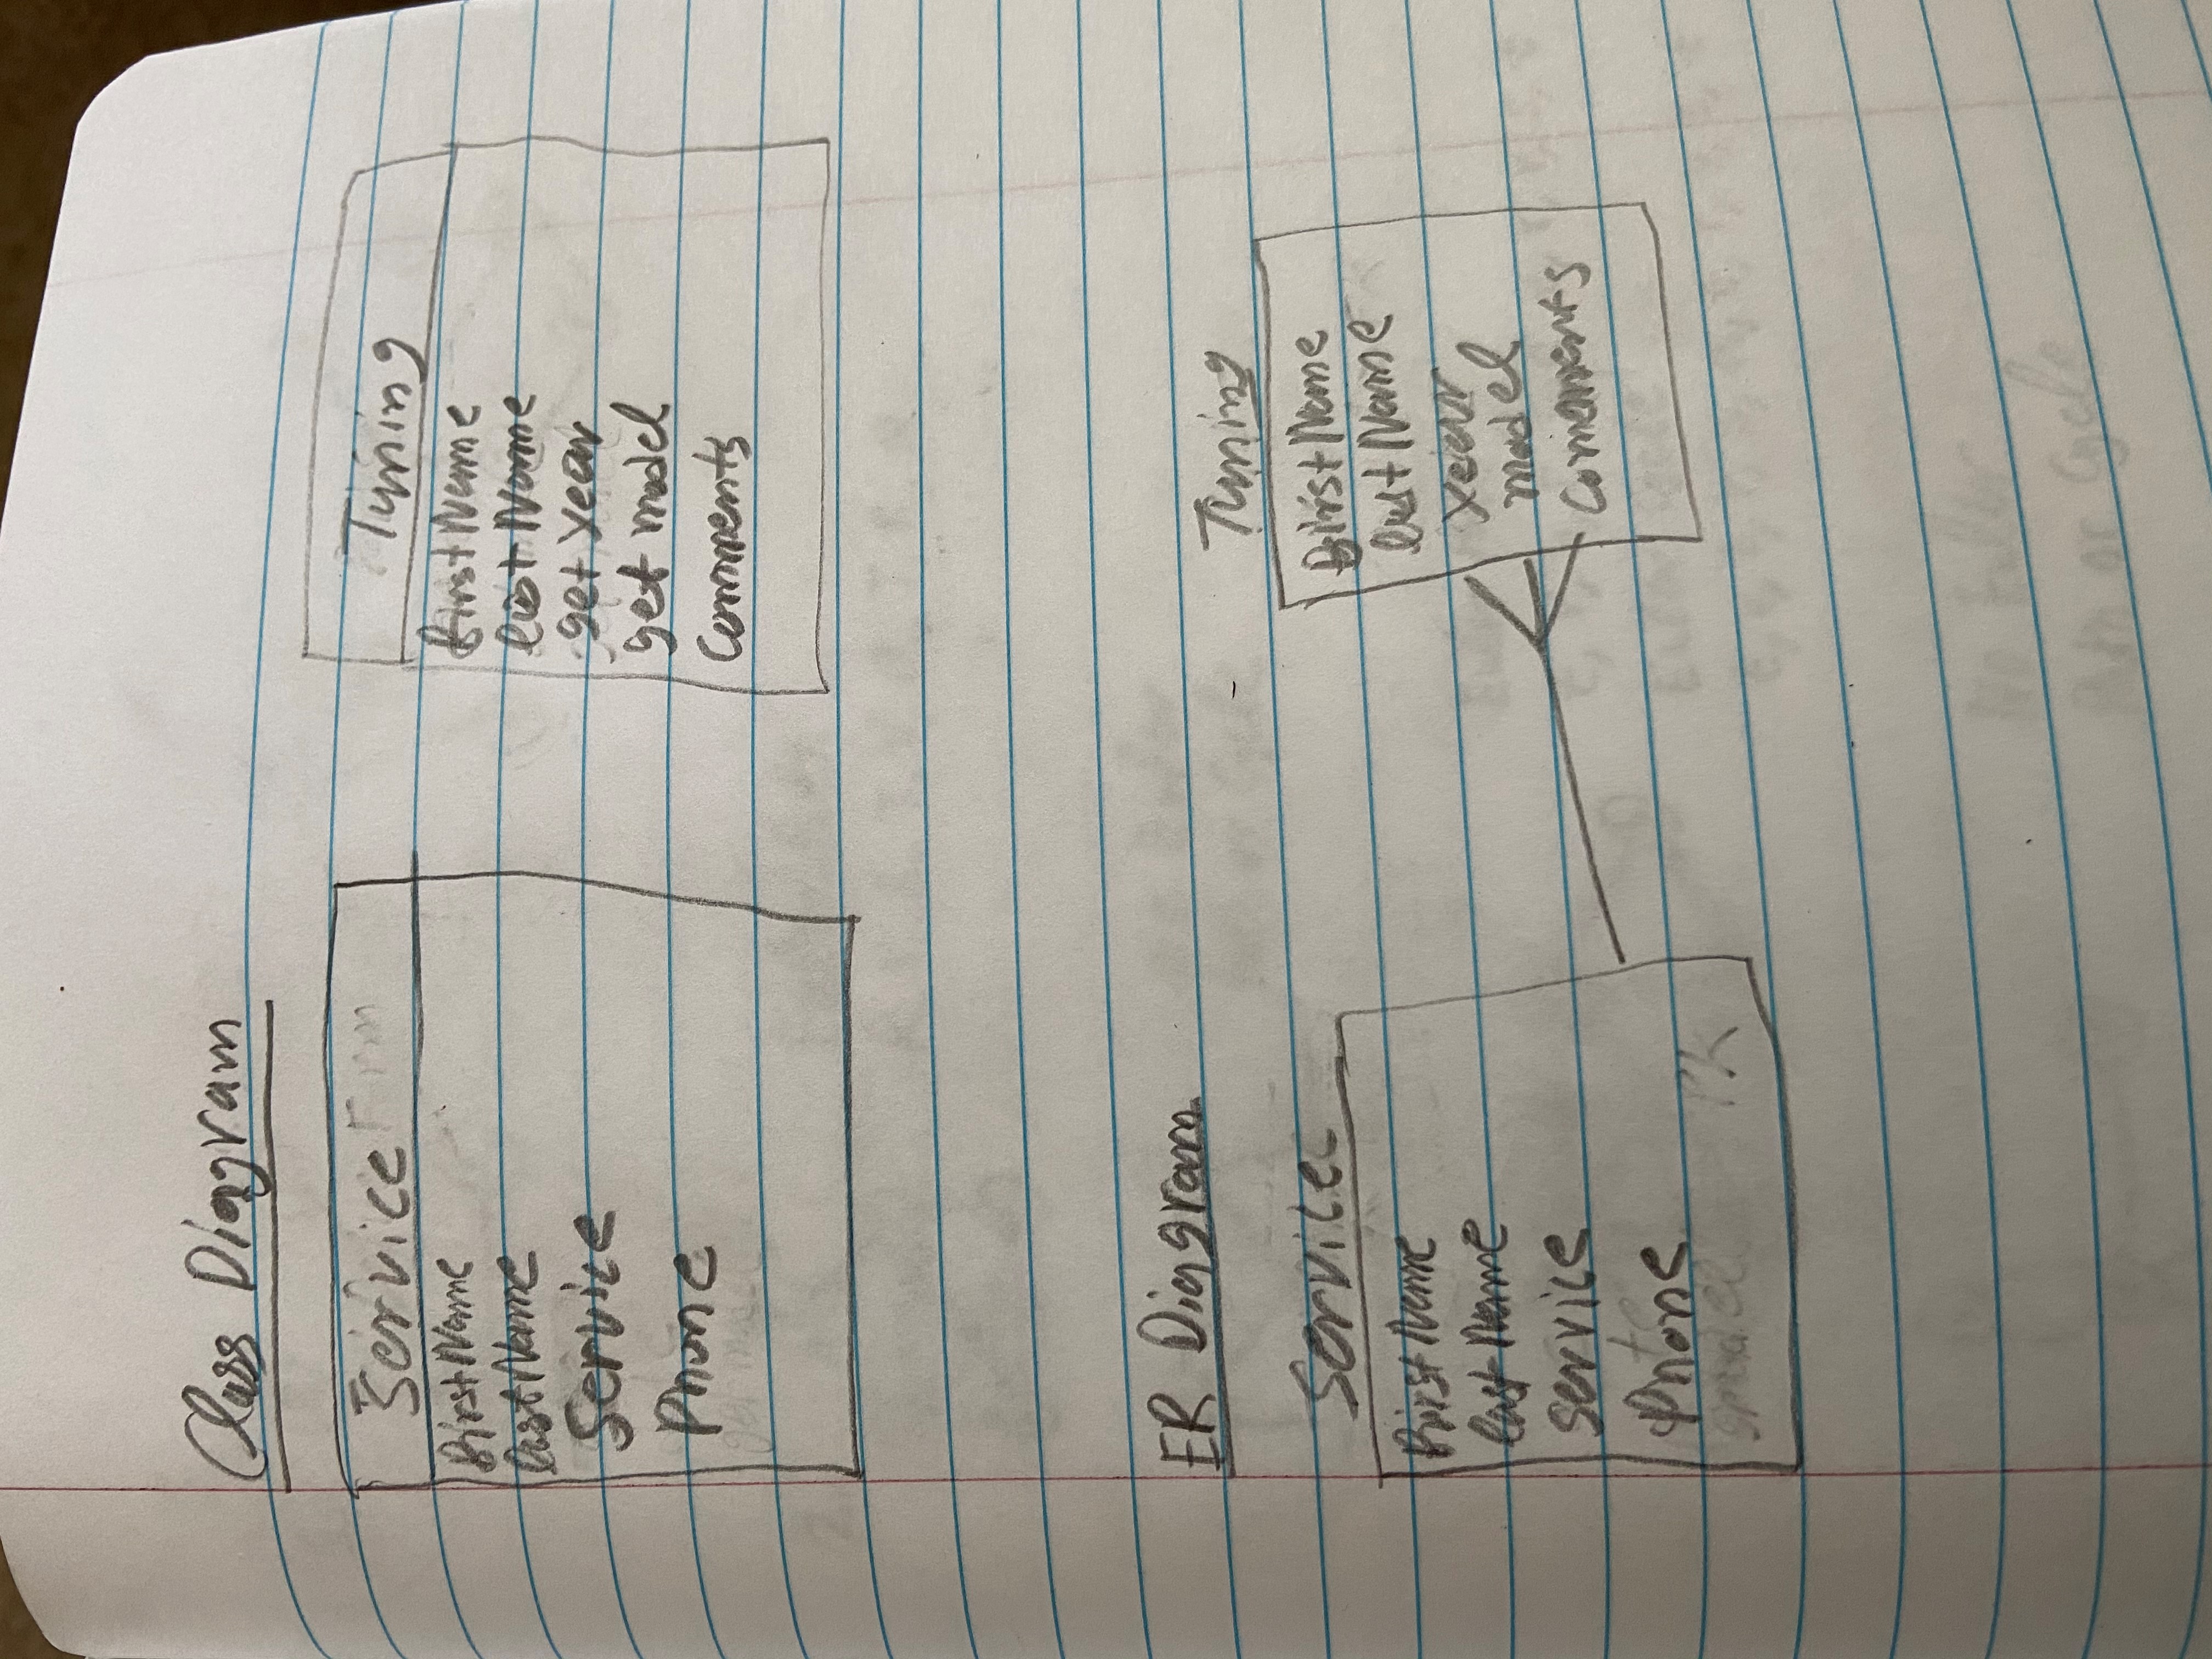 Class Diagram
Service
firstName
lastName
Service
Phone
Tuning
firstName
lastName
get year
get model
Comments
ER Diagram
Service
firstName
lastName
service
Phone
PK
Tuning
firstName
lastName
year
model
Comments